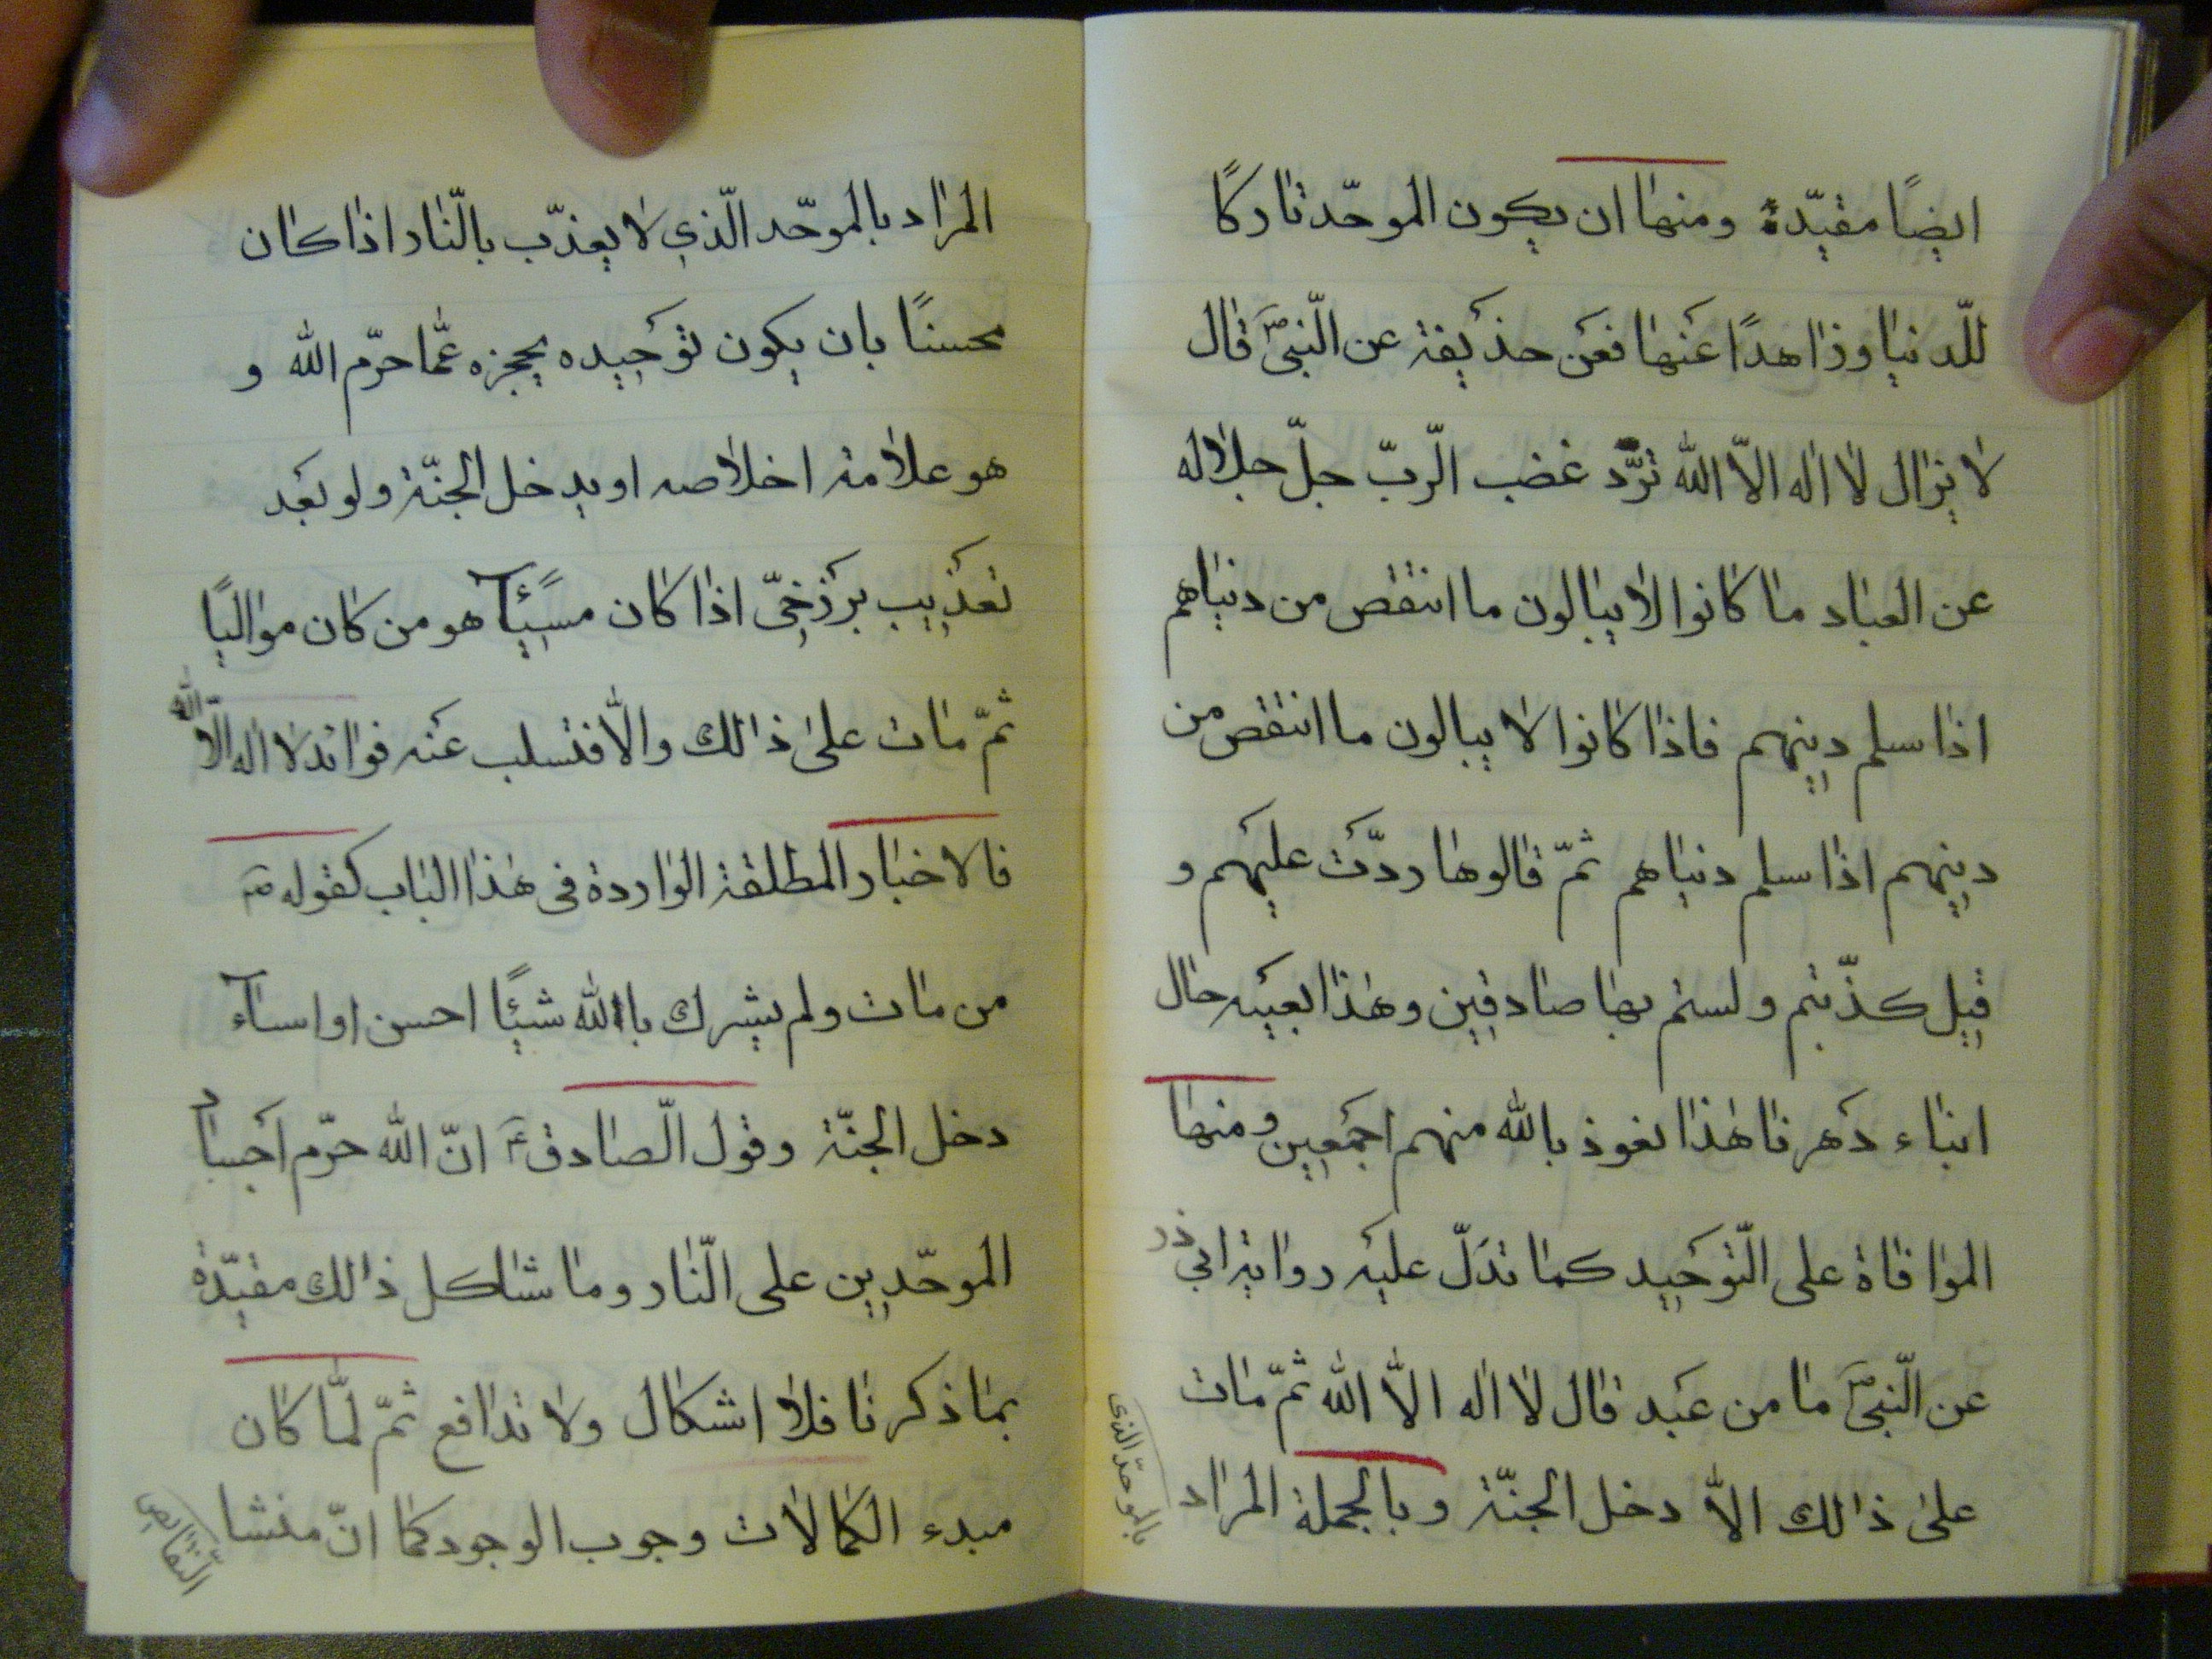 ايضًا مقيّدة ومنها ان يكون الموحّد تاركًا
للّدنيا وذاهدًا عنها فعن حذيفة عن الّنبىّ ص قال
لا يزال لا اله الاّ الله تردّ غضب الرّبّ جلّ جلاله
عن العباد ما كانوا لا يبالون ما انتقص من دنياهم
اذا سلم دينهم فاذا كانوا لا يبالون ما انتقص من
دينهم اذا سلم دنياهم ثمّ قالوها ردّت عليهم و
قيل كذّبتم ولستم بها صادقين وهذا بعينه حال
ابناء دهرنا هذا نعوذ بالله منهم اجمعين ومنها
الموافاة على الّتوحيد كما تدلّ عليه رواية ابي ذر
عن الّنبىّ ص ما من عبد قال لا اله الاّ الله ثمّ مات
على ذالك الاّ دخل الجنّة وبالجملة المراد
بالموحّد الذى
المراد بالموحّد الّذي لا يعذّب بالّنار اذا كان
محسنًا بان يكون توحيده يحجزه عمّا حرّم الله و
هو علامة اخلاصه او يدخل الجنّة ولو بعد
تعذيب برزخيّ اذا كان مسيئًا هو من كان مواليًا
ثمّ مات على ذالك والاّ فتسلب عنه فوائد لا اله الاّ الله
فالاخبار المطلقة الواردة في هذا الباب كقوله ص
من مات ولم يشرك باالله شيئًا احسن او اساء
دخل الجنّة وقول الّصادق ع انّ الله حرّم اجساد
الموحّدين على الّنار وما شاكل ذالك مقيّدة
بما ذكرنا فلا اشكال ولا تدافع ثمّ لمّا كان
مبدء الكمالات وجوب الوجود كما انّ منشا
الّنقايص